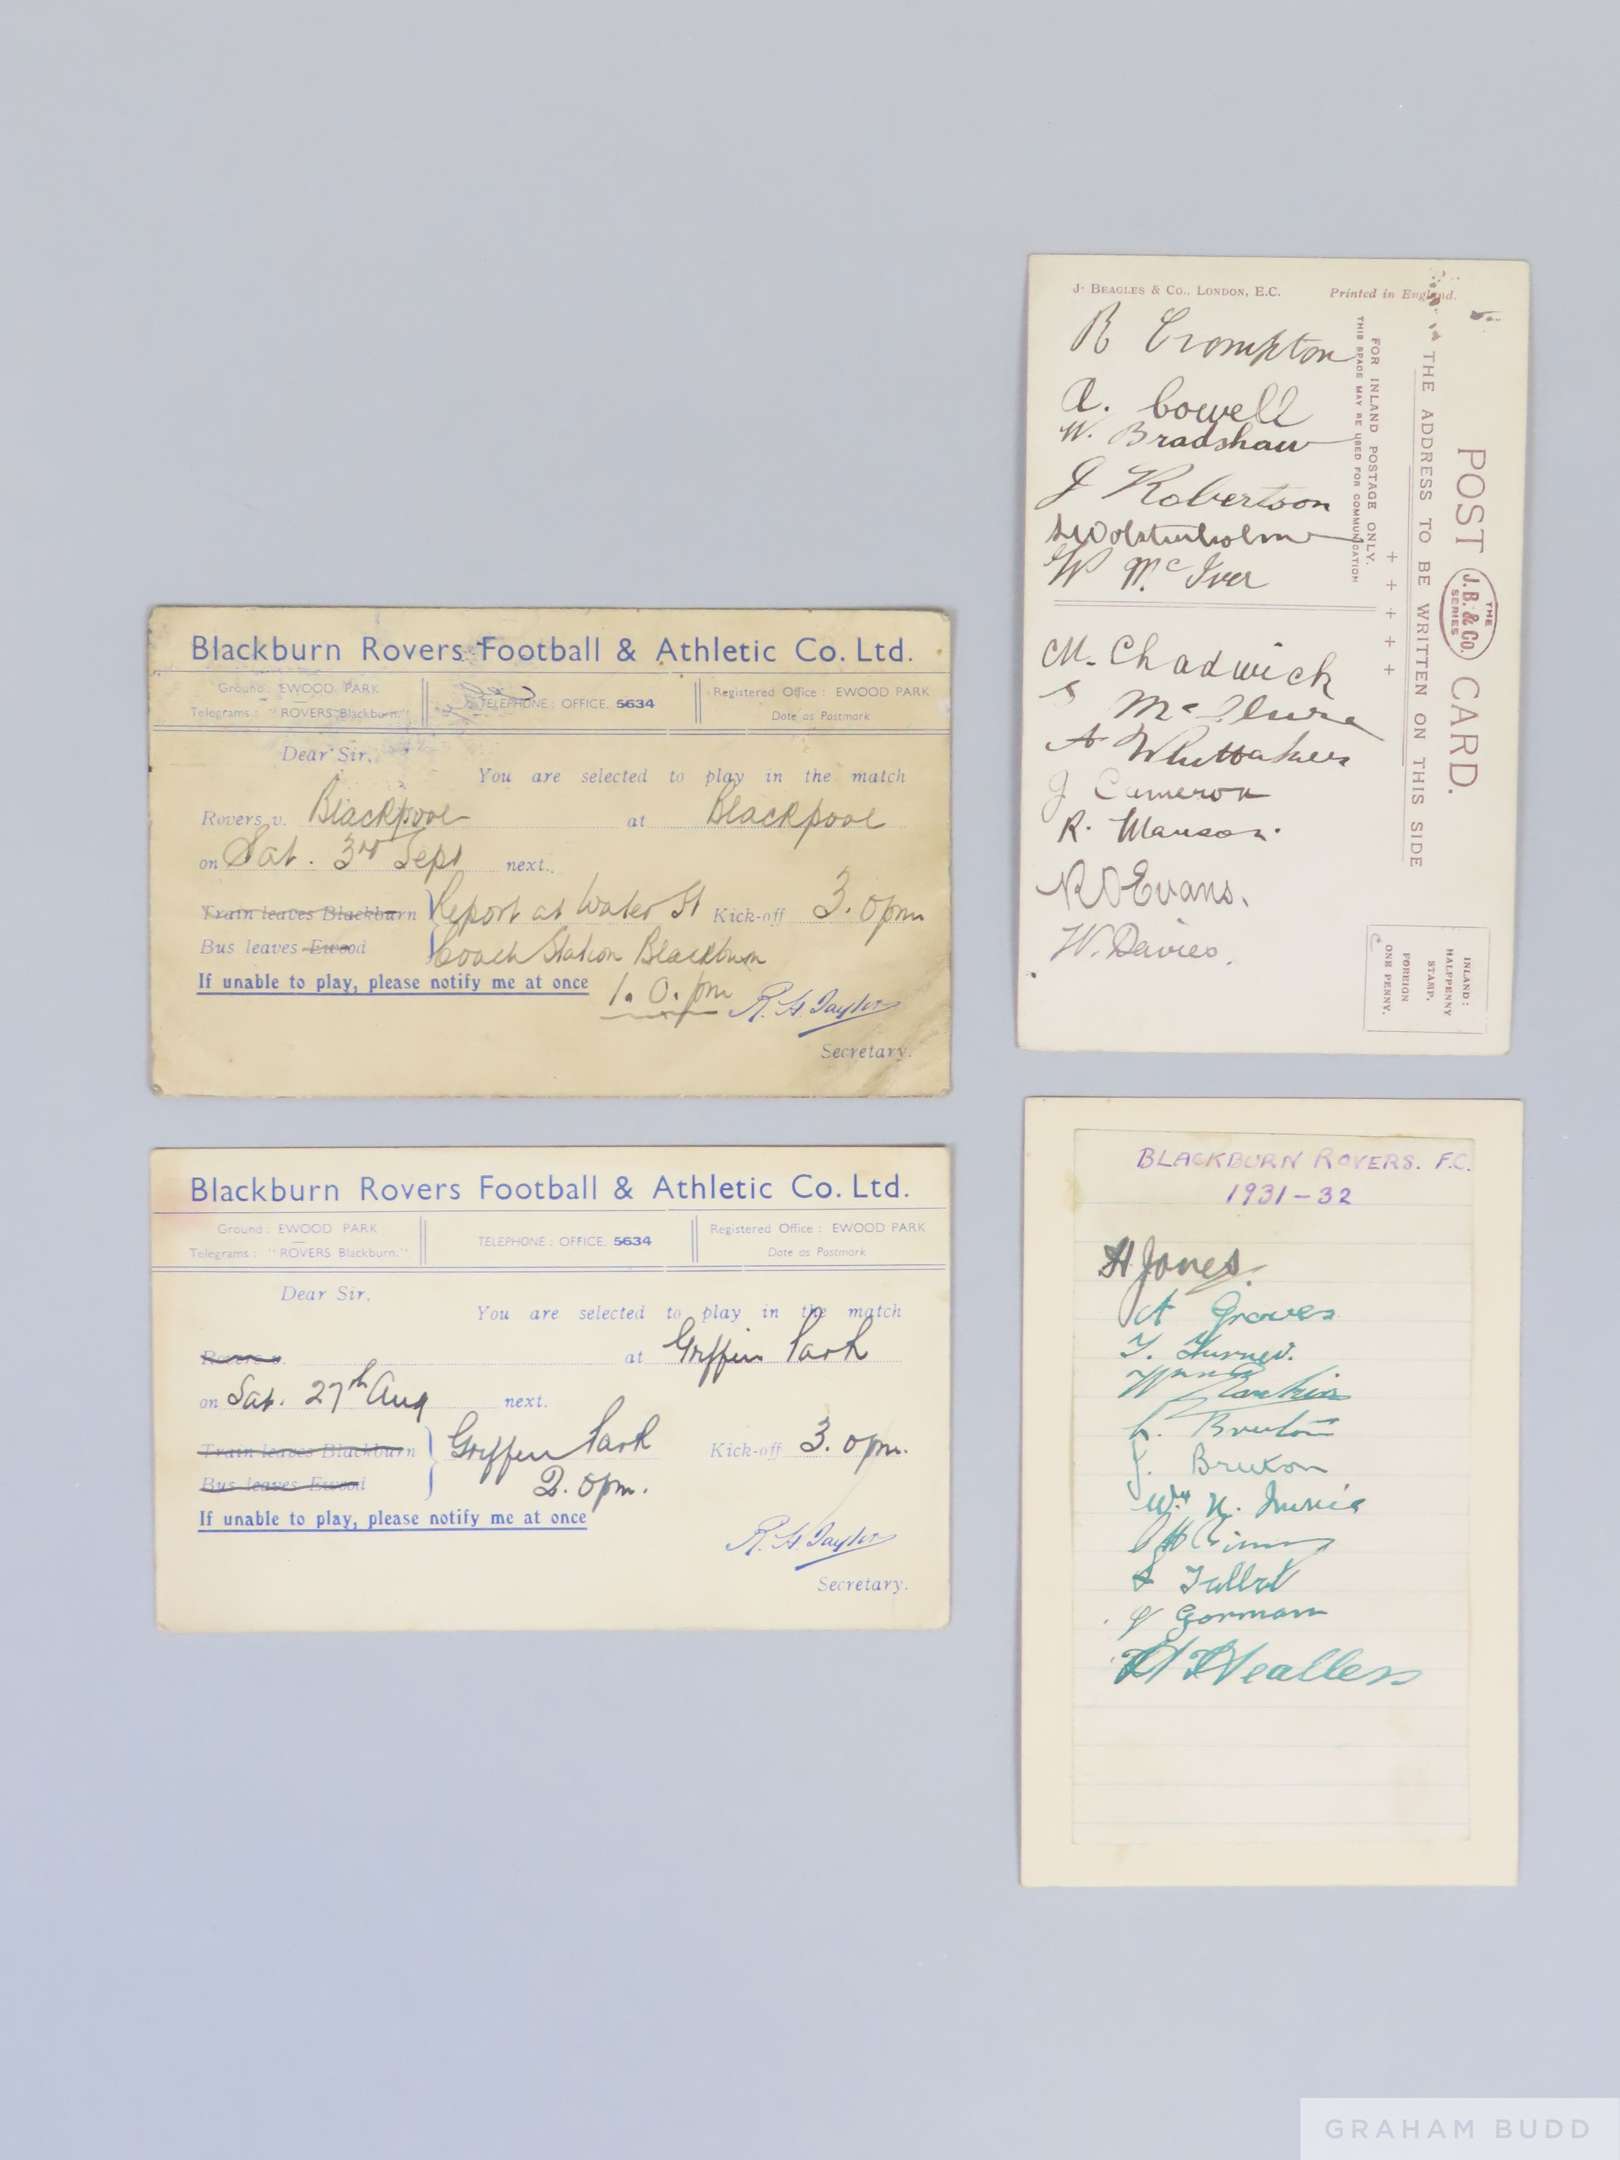 Blackburn Rovers Football & Athletic Co. Ltd.
Ground: EWOOD PARK
Telegrams: "ROVERS Blackburn."
TELEPHONE: OFFICE. 5634
Registered Office: EWOOD PARK
Date as Postmark
Dear Sir,
You are selected to play in the match
Rovers v. Blackpool at Blackpool
on Sat. 3rd Sept next.
Train leaves Blackburn } Report at Water St Kick-off 3.0pm
Bus leaves Ewood } Coach Station Blackburn
If unable to play, please notify me at once 1.0.pm
R. H. Taylor
Secretary.
Blackburn Rovers Football & Athletic Co. Ltd.
Ground: EWOOD PARK
Telegrams: "ROVERS Blackburn."
TELEPHONE: OFFICE. 5634
Registered Office: EWOOD PARK
Date as Postmark
Dear Sir,
You are selected to play in the match
Rovers v. at Griffin Park
on Sat. 27th Aug next.
Train leaves Blackburn } Griffin Park Kick-off 3.0pm.
Bus leaves Ewood } 2.0pm.
If unable to play, please notify me at once
R. H. Taylor
Secretary.
J. BEAGLES & CO., LONDON, E.C. Printed in England.
R Crompton
A. Cowell
W. Bradshaw
J Robertson
S Wolstenholme
W McIver
M. Chadwick
S McClure
A Whittaker
J Cameron
R. Manson.
R O Evans.
W. Davies.
POST CARD.
THE
J.B. & Co.
SERIES
THE ADDRESS TO BE WRITTEN ON THIS SIDE
FOR INLAND POSTAGE ONLY.
THIS SPACE MAY BE USED FOR COMMUNICATION
INLAND:
HALFPENNY
STAMP.
FOREIGN
ONE PENNY.
BLACKBURN ROVERS. F.C.
1931-32
H Jones.
A Groves
T. Turner.
L. Bruton
J. Bruton
Wm N. Imrie
Talbot
J Gorman
H Healless
GRAHAM BUDD